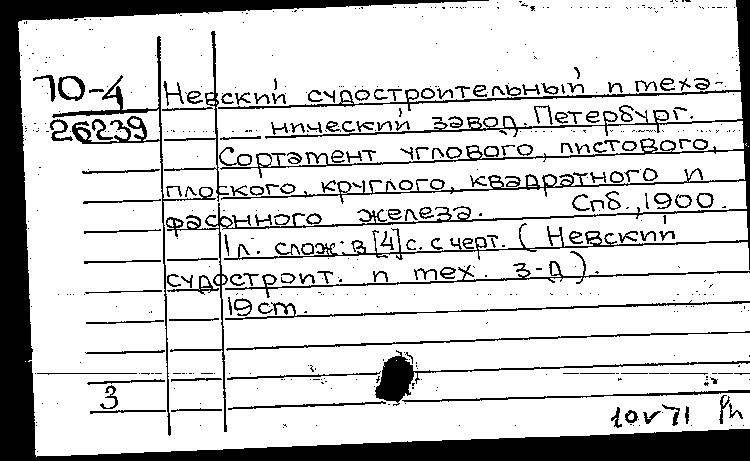 Ю-4
26239
Невский судостроительный и меха-
нический завод. Петербург.
Сортамент углового, листового,
плоского, круглого, квадратного и
фасонного железа. Спб., 1900.
1 л. слож. в [4] с. с черт. (Невский
судостроит. и мех. з-д).
19 cm.
3
10 V 71